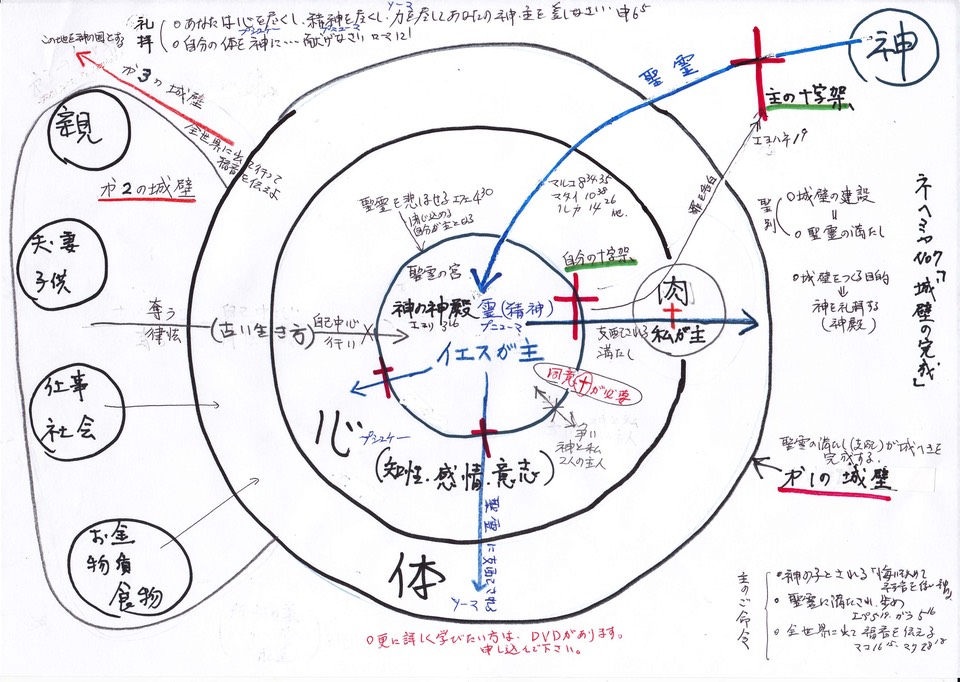 礼拝
○あなたは心を尽くし、精神を尽くし、力を尽してあなたの神、主を愛しなさい 申6 5
プシュケー
プニューマ
ソーマ
○自分の体を神に…献げなさい ロマ12 1
この地を神の国とする
オ3の城壁
全世界に出て行って
福音を伝えよ
親
オ2の城壁
夫・妻
子供
仕事
社会
お金
物質
食物
奪う
律法
(古い生き方)
自己中心
行い
聖霊を悲しませる エフェ4 30
閉じ込める
自分が主となる
聖霊の宮
神の神殿
Iコリ3 16
霊(精神)
プニューマ
イエスが主
心
プシュケー
(知性、感情、意志)
体
聖霊に支配される
ソーマ
聖霊
神
主の十字架
Iヨハネ1 9
罪を告白
マルコ8 34.35
マタイ10 38
ルカ14 26
他.
自分の十字架
肉
私が主
支配される
満たし
同意が必要
争い
神と私
2人の主人
聖別
○城壁の建設
○聖霊の満たし
○城壁をつくる目的
神を礼拝する
(神殿)
ネヘミヤNo7「城壁の完成」
聖霊の満たし(支配)が城ぺきを
完成する.
オ1の城壁
主のご命令
○神の子とされる「悔い改めて
福音を信じ
○聖霊に満たされ、歩め
エペ5 18. ガラ5 16
○全世界に出て福音を伝える
マコ16 15. マタ28 18
○更に詳しく学びたい方は、DVDがあります。
申し込んで下さい。